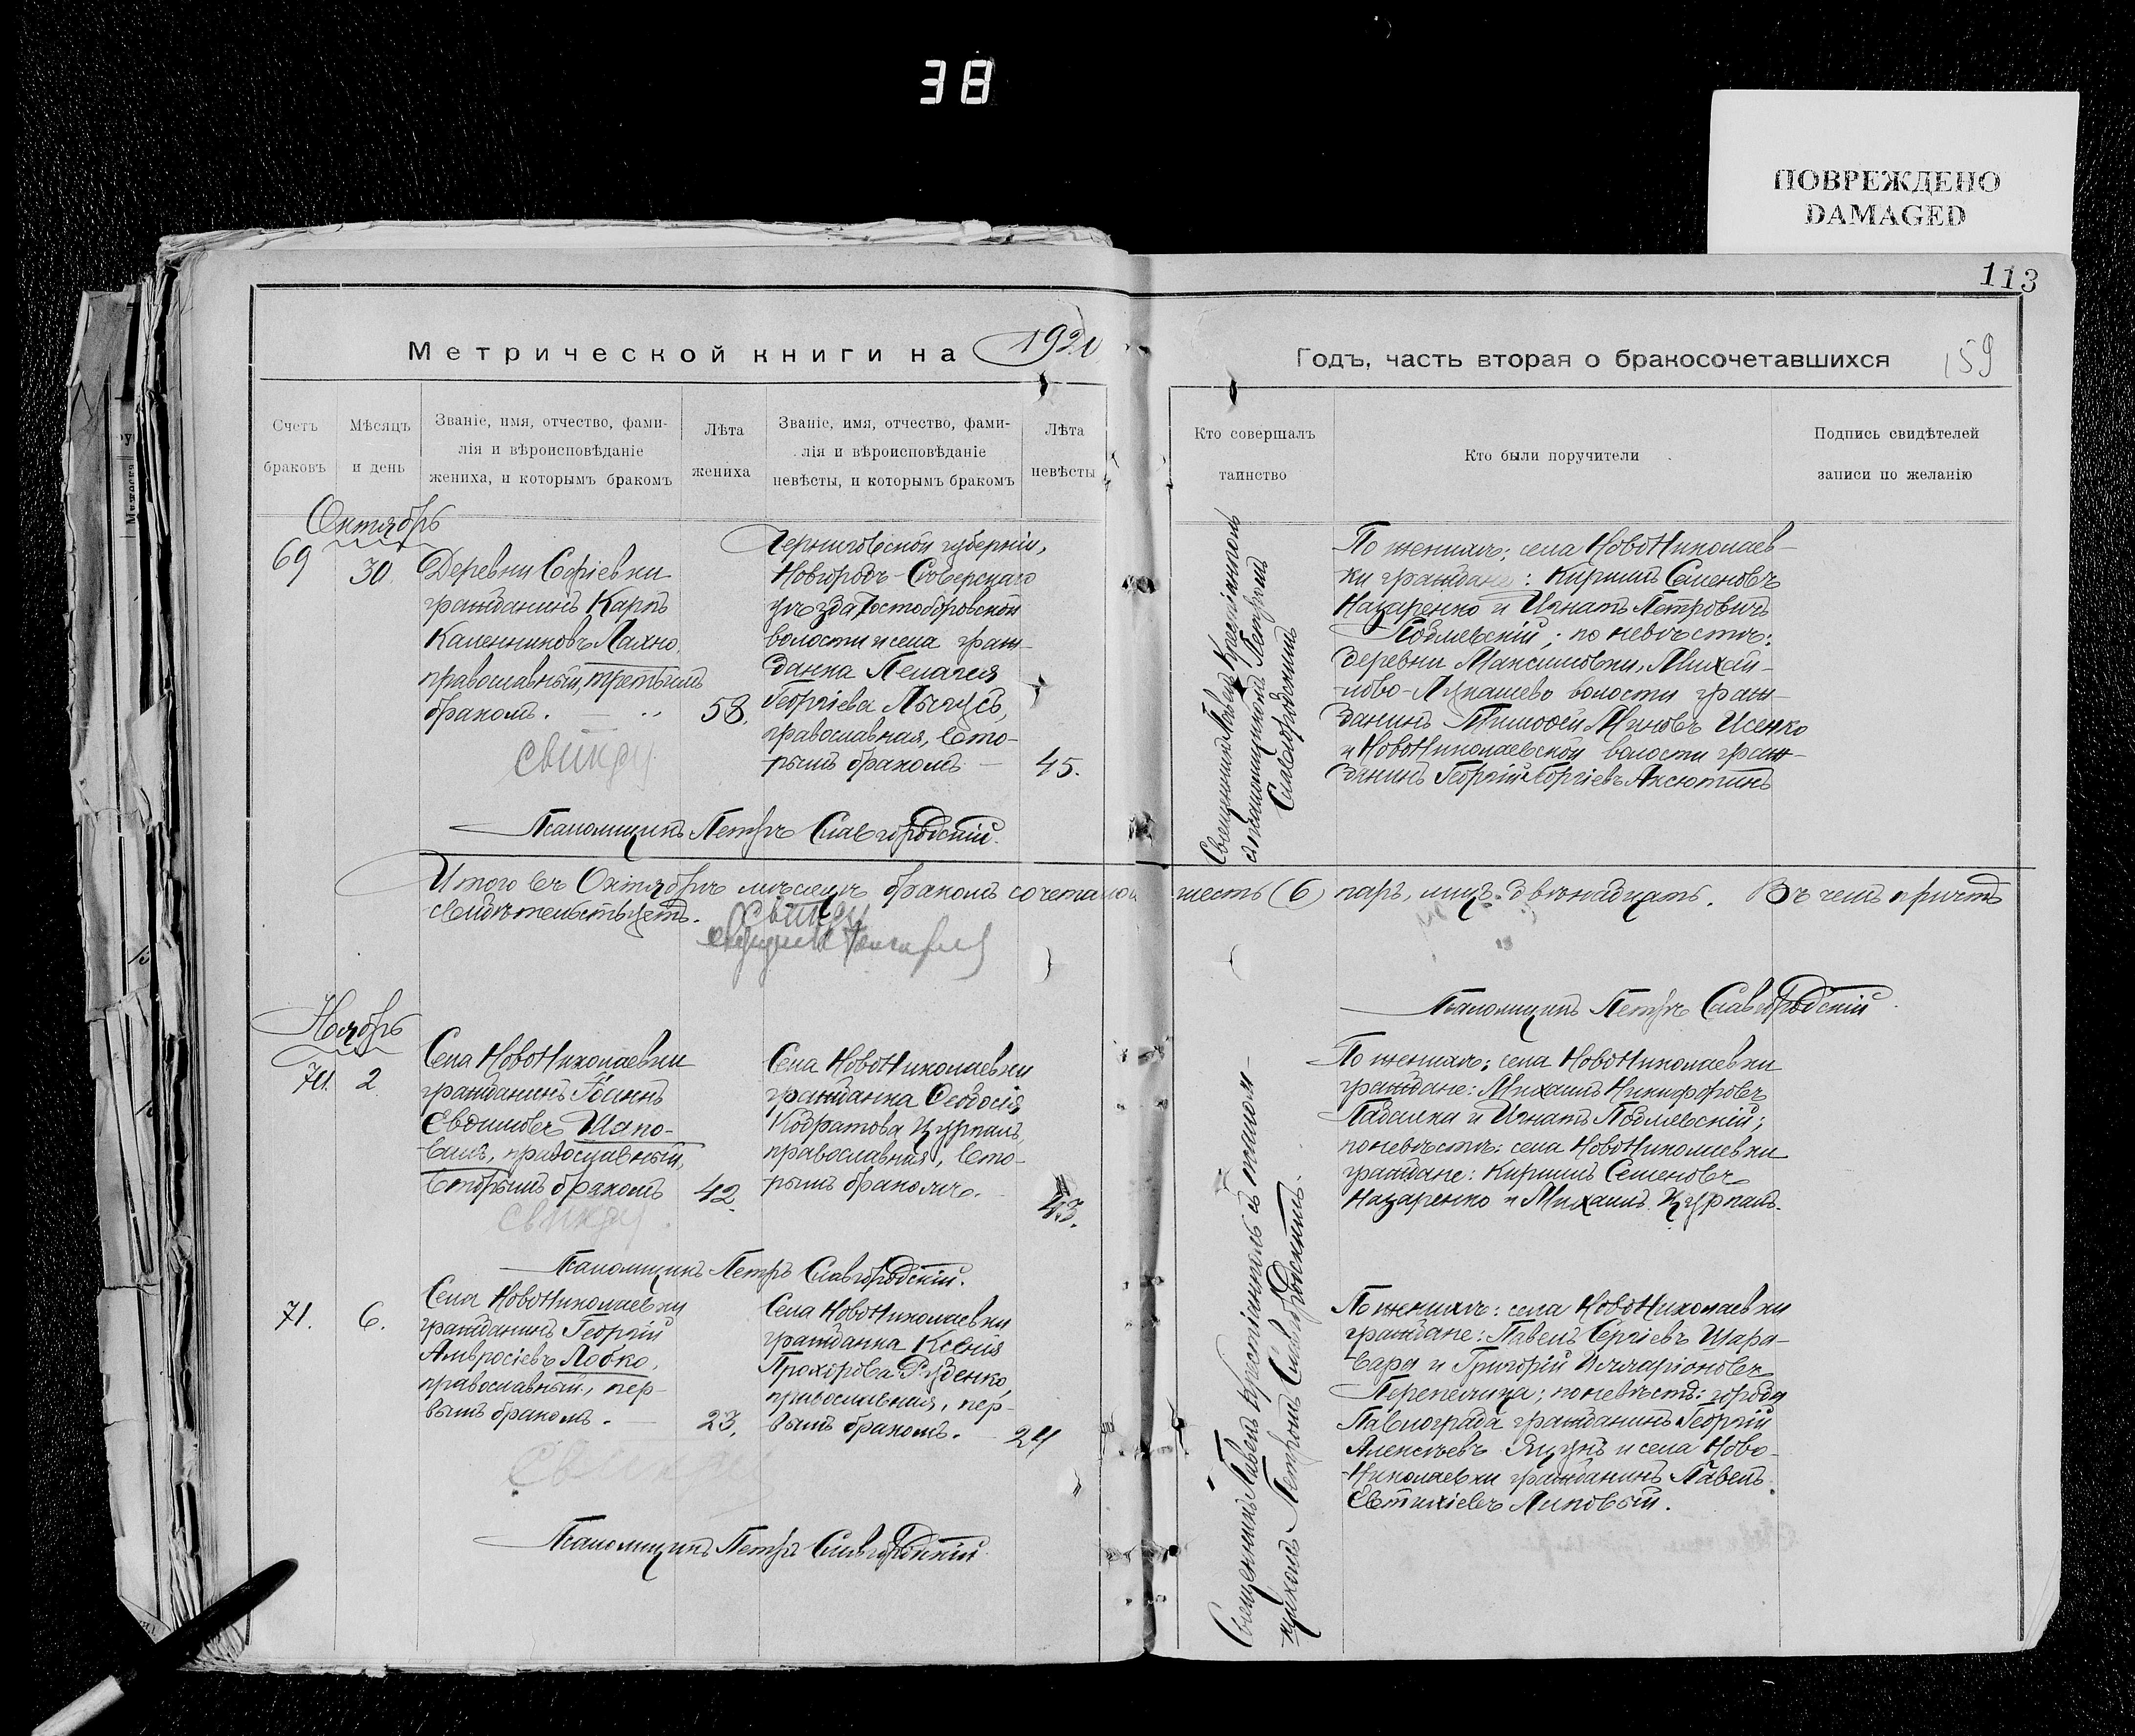 38
ПОВРЕЖДЕНО
DAMAGED
113
Метрической книги на 1920
Годъ, часть вторая о бракосочетавшихся
159
Счетъ
браковъ
Мѣсяцъ
и день
Званіе, имя, отчество, фами-
лія и вѣроисповѣданіе
жениха, и которымъ бракомъ
Лѣта
жениха
Званіе, имя, отчество, фами-
лія и вѣроисповѣданіе
невѣсты, и которымъ бракомъ
Лѣта
невѣсты
Кто совершалъ
таинство
Кто были поручители
Подпись свидѣтелей
записи по желанію
Октябрь
69
30
Деревни Софіевки
гражданинъ Карпъ
Каленниковъ Лахно,
православный, третьимъ
бракомъ.
58.
Черниговской губерніи,
Новгородъ-Сѣверскаго
уѣзда Костобобровской
волости и села граж-
данка Пелагея
Георгіева
православная, вто-
рымъ бракомъ
45.
Священникъ Павелъ
съ псаломщикомъ Петромъ
Славгородскимъ
По женихѣ: села НовоНиколаев-
ки граждане: Кириллъ Семеновъ
Назаренко и Игнатъ Петровичъ
Подлевскій; по невѣстѣ:
деревни Максимовки, Михай-
лово-Лукашево волости граж-
данинъ Тимофей Миновъ Исенко
и НовоНиколаевской волости граж-
данинъ Георгій Георгіевъ Аксютинъ
Псаломщикъ Петръ Славгородскій.
Итого въ Октябрѣ мѣсяцѣ бракомъ сочетано шесть (6) паръ, лицъ двѣнадцать. Въ чемъ причтъ
свидѣтельствуетъ.
Псаломщикъ Петръ Славгородскій
Ноябрь
70.
2
Села НовоНиколаевки
гражданинъ Іоаннъ
Евдокимовъ Шапо-
валъ, православный,
вторымъ бракомъ
42.
Села НовоНиколаевки
гражданка Феодосія
Кодратова Цуркалъ,
православная, вто-
рымъ бракомъ.
43.
По женихѣ: села НовоНиколаевки
граждане: Михаилъ Никифоровъ
Падалка и Игнатъ Подлевскій;
по невѣстѣ: села НовоНиколаевки
граждане: Кириллъ Семеновъ
Назаренко и Михаилъ Цуркалъ.
Псаломщикъ Петръ Славгородскій.
71.
6.
Села НовоНиколаевки
гражданинъ Георгій
Амвросіевъ Лобко,
православный, пер-
вымъ бракомъ.
23.
Села НовоНиколаевки
гражданка Ксенія
Прохорова Руденко,
православная, пер-
вымъ бракомъ.
24
Священникъ Павелъ съ псалом-
щикомъ Петромъ Славгородскимъ.
По женихѣ: села НовоНиколаевки
граждане: Павелъ Сергіевъ Шара-
вара и Григорій Илларіоновъ
Перепелица; по невѣстѣ: города
Павлограда гражданинъ Георгій
Алексѣевъ Яцунъ и села Ново-
Николаевки гражданинъ Павелъ
Евтихіевъ Липовый.
Псаломщикъ Петръ Славгородскій